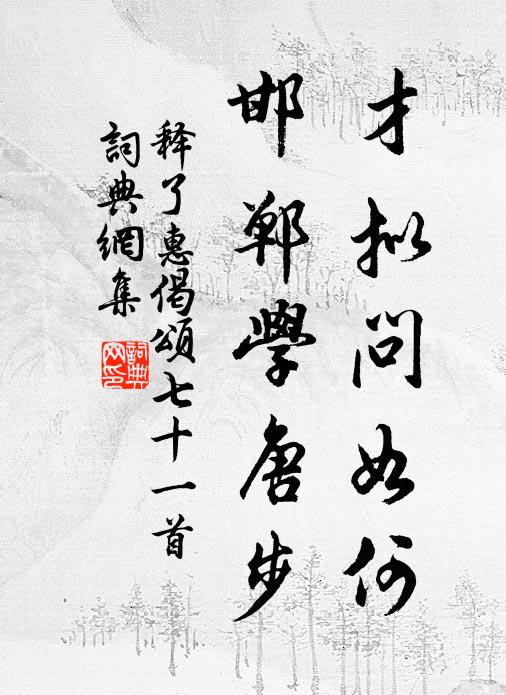 才拟问如何
邯郸學唐步
释了惠偈頌七十一首
詞典網集
詞典网印